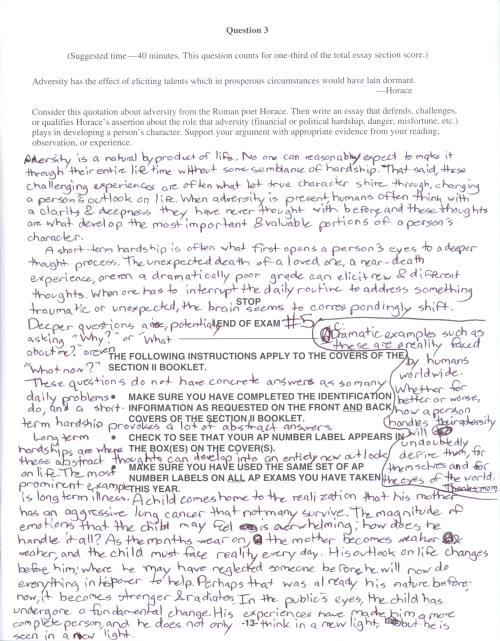 Question 3
(Suggested time—40 minutes. This question counts for one-third of the total essay section score.)
Adversity has the effect of eliciting talents which in prosperous circumstances would have lain dormant.
—Horace
Consider this quotation about adversity from the Roman poet Horace. Then write an essay that defends, challenges,
or qualifies Horace's assertion about the role that adversity (financial or political hardship, danger, misfortune, etc.)
plays in developing a person's character. Support your argument with appropriate evidence from your reading,
observation, or experience.
Adversity is a natural byproduct of life. No one can reasonably expect to make it
through their entire life time without some semblance of hardship. That said, these
challenging experiences are often what let true character shine through, changing
a person's outlook on life. When adversity is present, humans often think with
a clarity & deepness they have never thought with before, and these thoughts
are what develop the most important & valuable portions of a person's
character.
A short-term hardship is often what first opens a person's eyes to a deeper
thought process. The unexpected death of a loved one, a near-death
experience, or even a dramatically poor grade can elicit new & different
thoughts. When one has to interrupt the daily routine to address something
STOP
traumatic or unexpected, the brain seems to correspondingly shift.
Deeper questions arise, potentially
END OF EXAM
#5
asking "Why?" or "What
about me?" or even
"What now?"
THE FOLLOWING INSTRUCTIONS APPLY TO THE COVERS OF THE
SECTION II BOOKLET.
These questions do not have concrete answers as so many
daily problems
do, and a short-
term hardship provokes a lot of abstract answers.
• MAKE SURE YOU HAVE COMPLETED THE IDENTIFICATION
INFORMATION AS REQUESTED ON THE FRONT AND BACK
COVERS OF THE SECTION II BOOKLET.
• CHECK TO SEE THAT YOUR AP NUMBER LABEL APPEARS IN
THE BOX(ES) ON THE COVER(S).
• MAKE SURE YOU HAVE USED THE SAME SET OF AP
NUMBER LABELS ON ALL AP EXAMS YOU HAVE TAKEN
THIS YEAR.
Long term
hardships are where
these abstract thoughts can develop into an entirely new outlook
on life. The most
prominent example
is long term illness. A child comes home to the realization that his mother
has an aggressive lung cancer that not many survive. The magnitude of
emotions that the child may feel is overwhelming; how does he
handle it all? As the months wear on, the mother becomes weaker &
weaker, and the child must face reality every day. His outlook on life changes
before him; where he may have neglected someone before he will now do
everything in his power to help. Perhaps that was already his nature before;
now, it becomes stronger & radiates. In the public's eyes, the child has
undergone a fundamental change. His experiences have made him a more
complete person, and he does not only think in a new light, but he is
seen in a new light.
-13-
Dramatic examples such as
these are a reality faced
by humans
worldwide.
Whether for
better or worse,
how a person
handles their adversity
will
undoubtedly
define them, for
themselves and for
the eyes of the world.